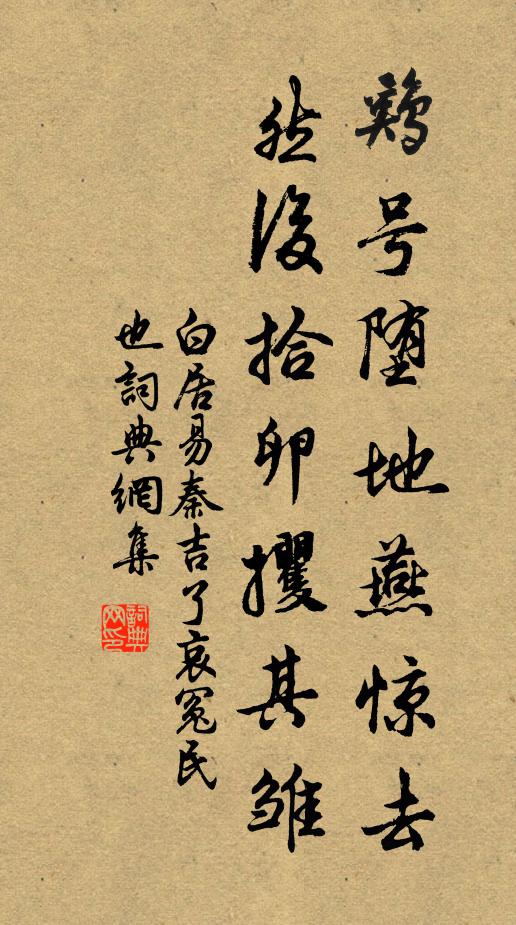 鶏号堕地燕惊去
然後拾卵攫其雏
白居易秦吉了哀冤民
也詞典網集
詞典網印